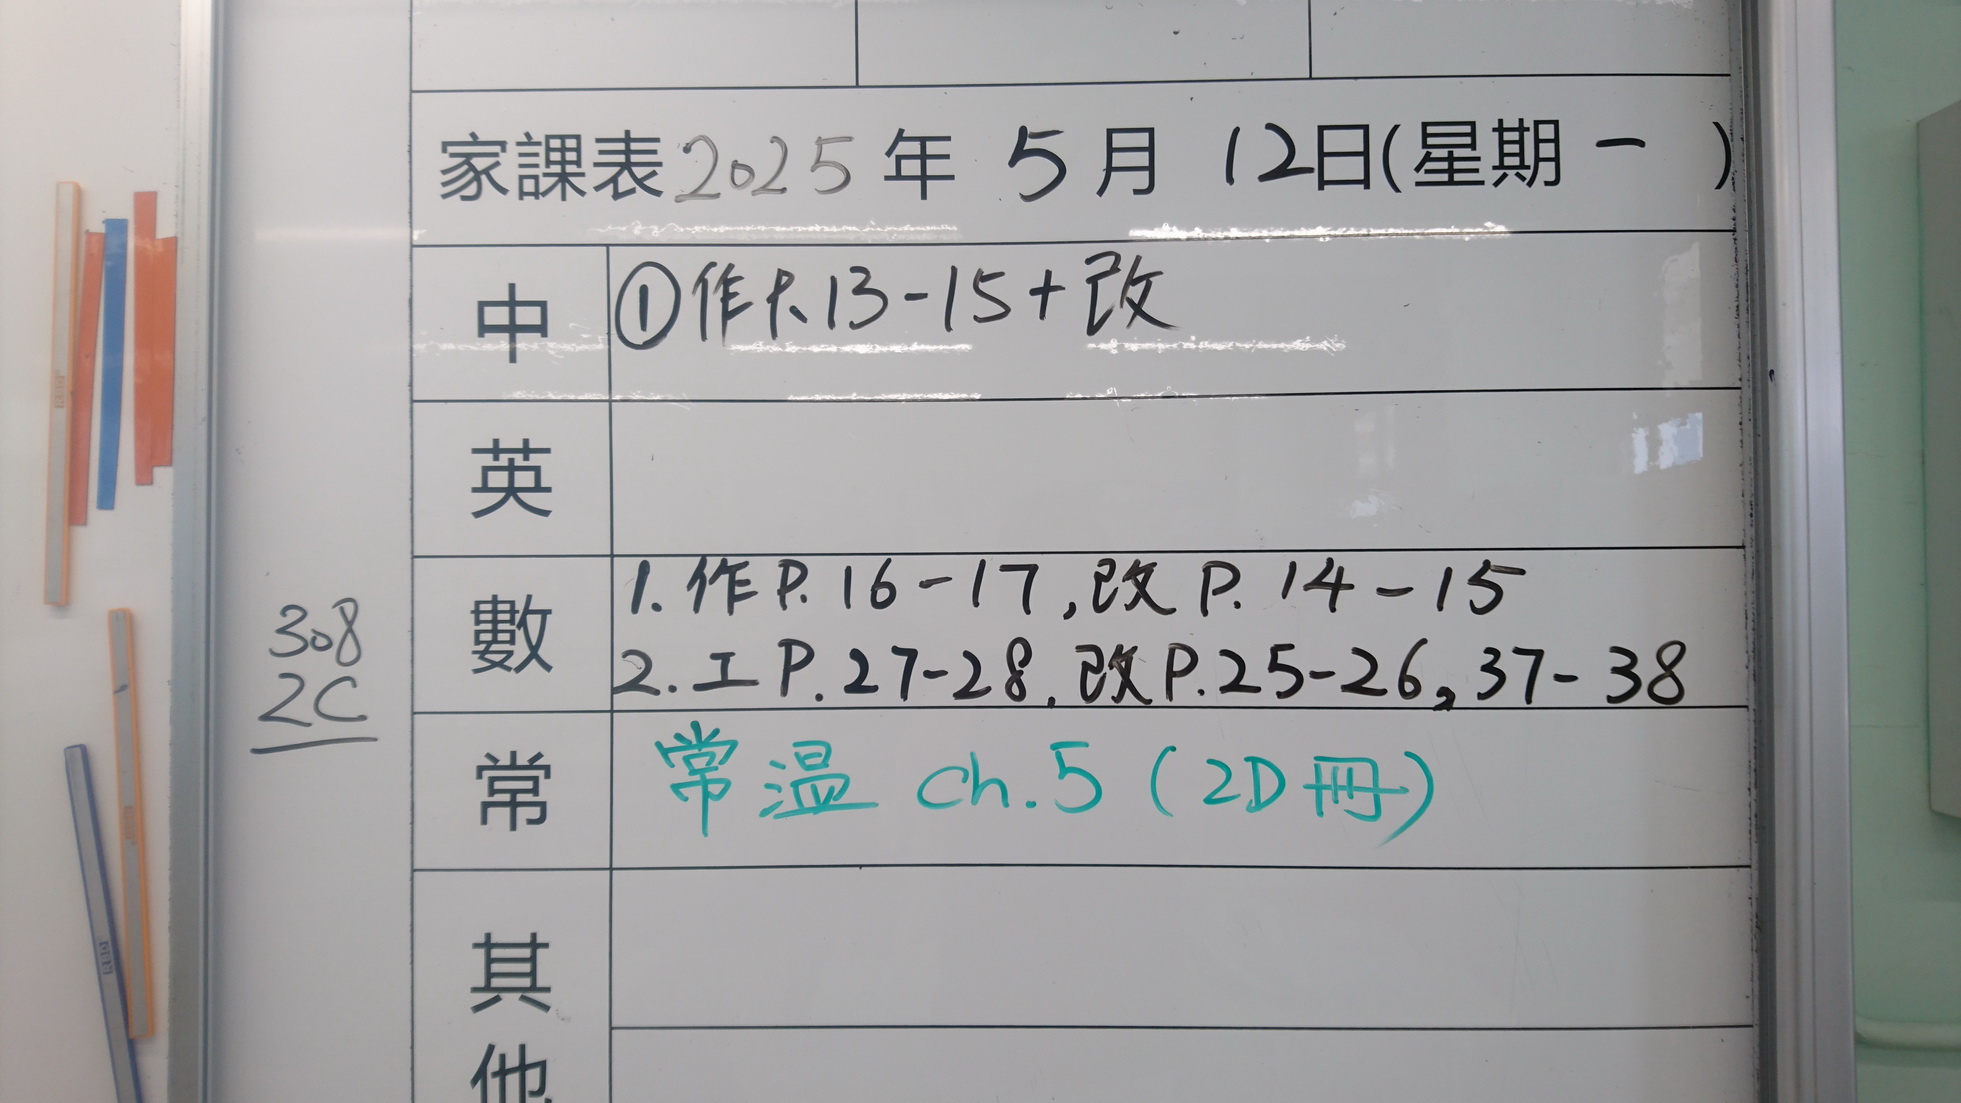 家課表2025年 5月 12日(星期 一 )
中
①作P.13-15+改
英
數
1.作P.16-17,改P.14-15
2.工P.27-28,改P.25-26,37-38
308
2C
常
常温 ch.5(2D冊)
其
他